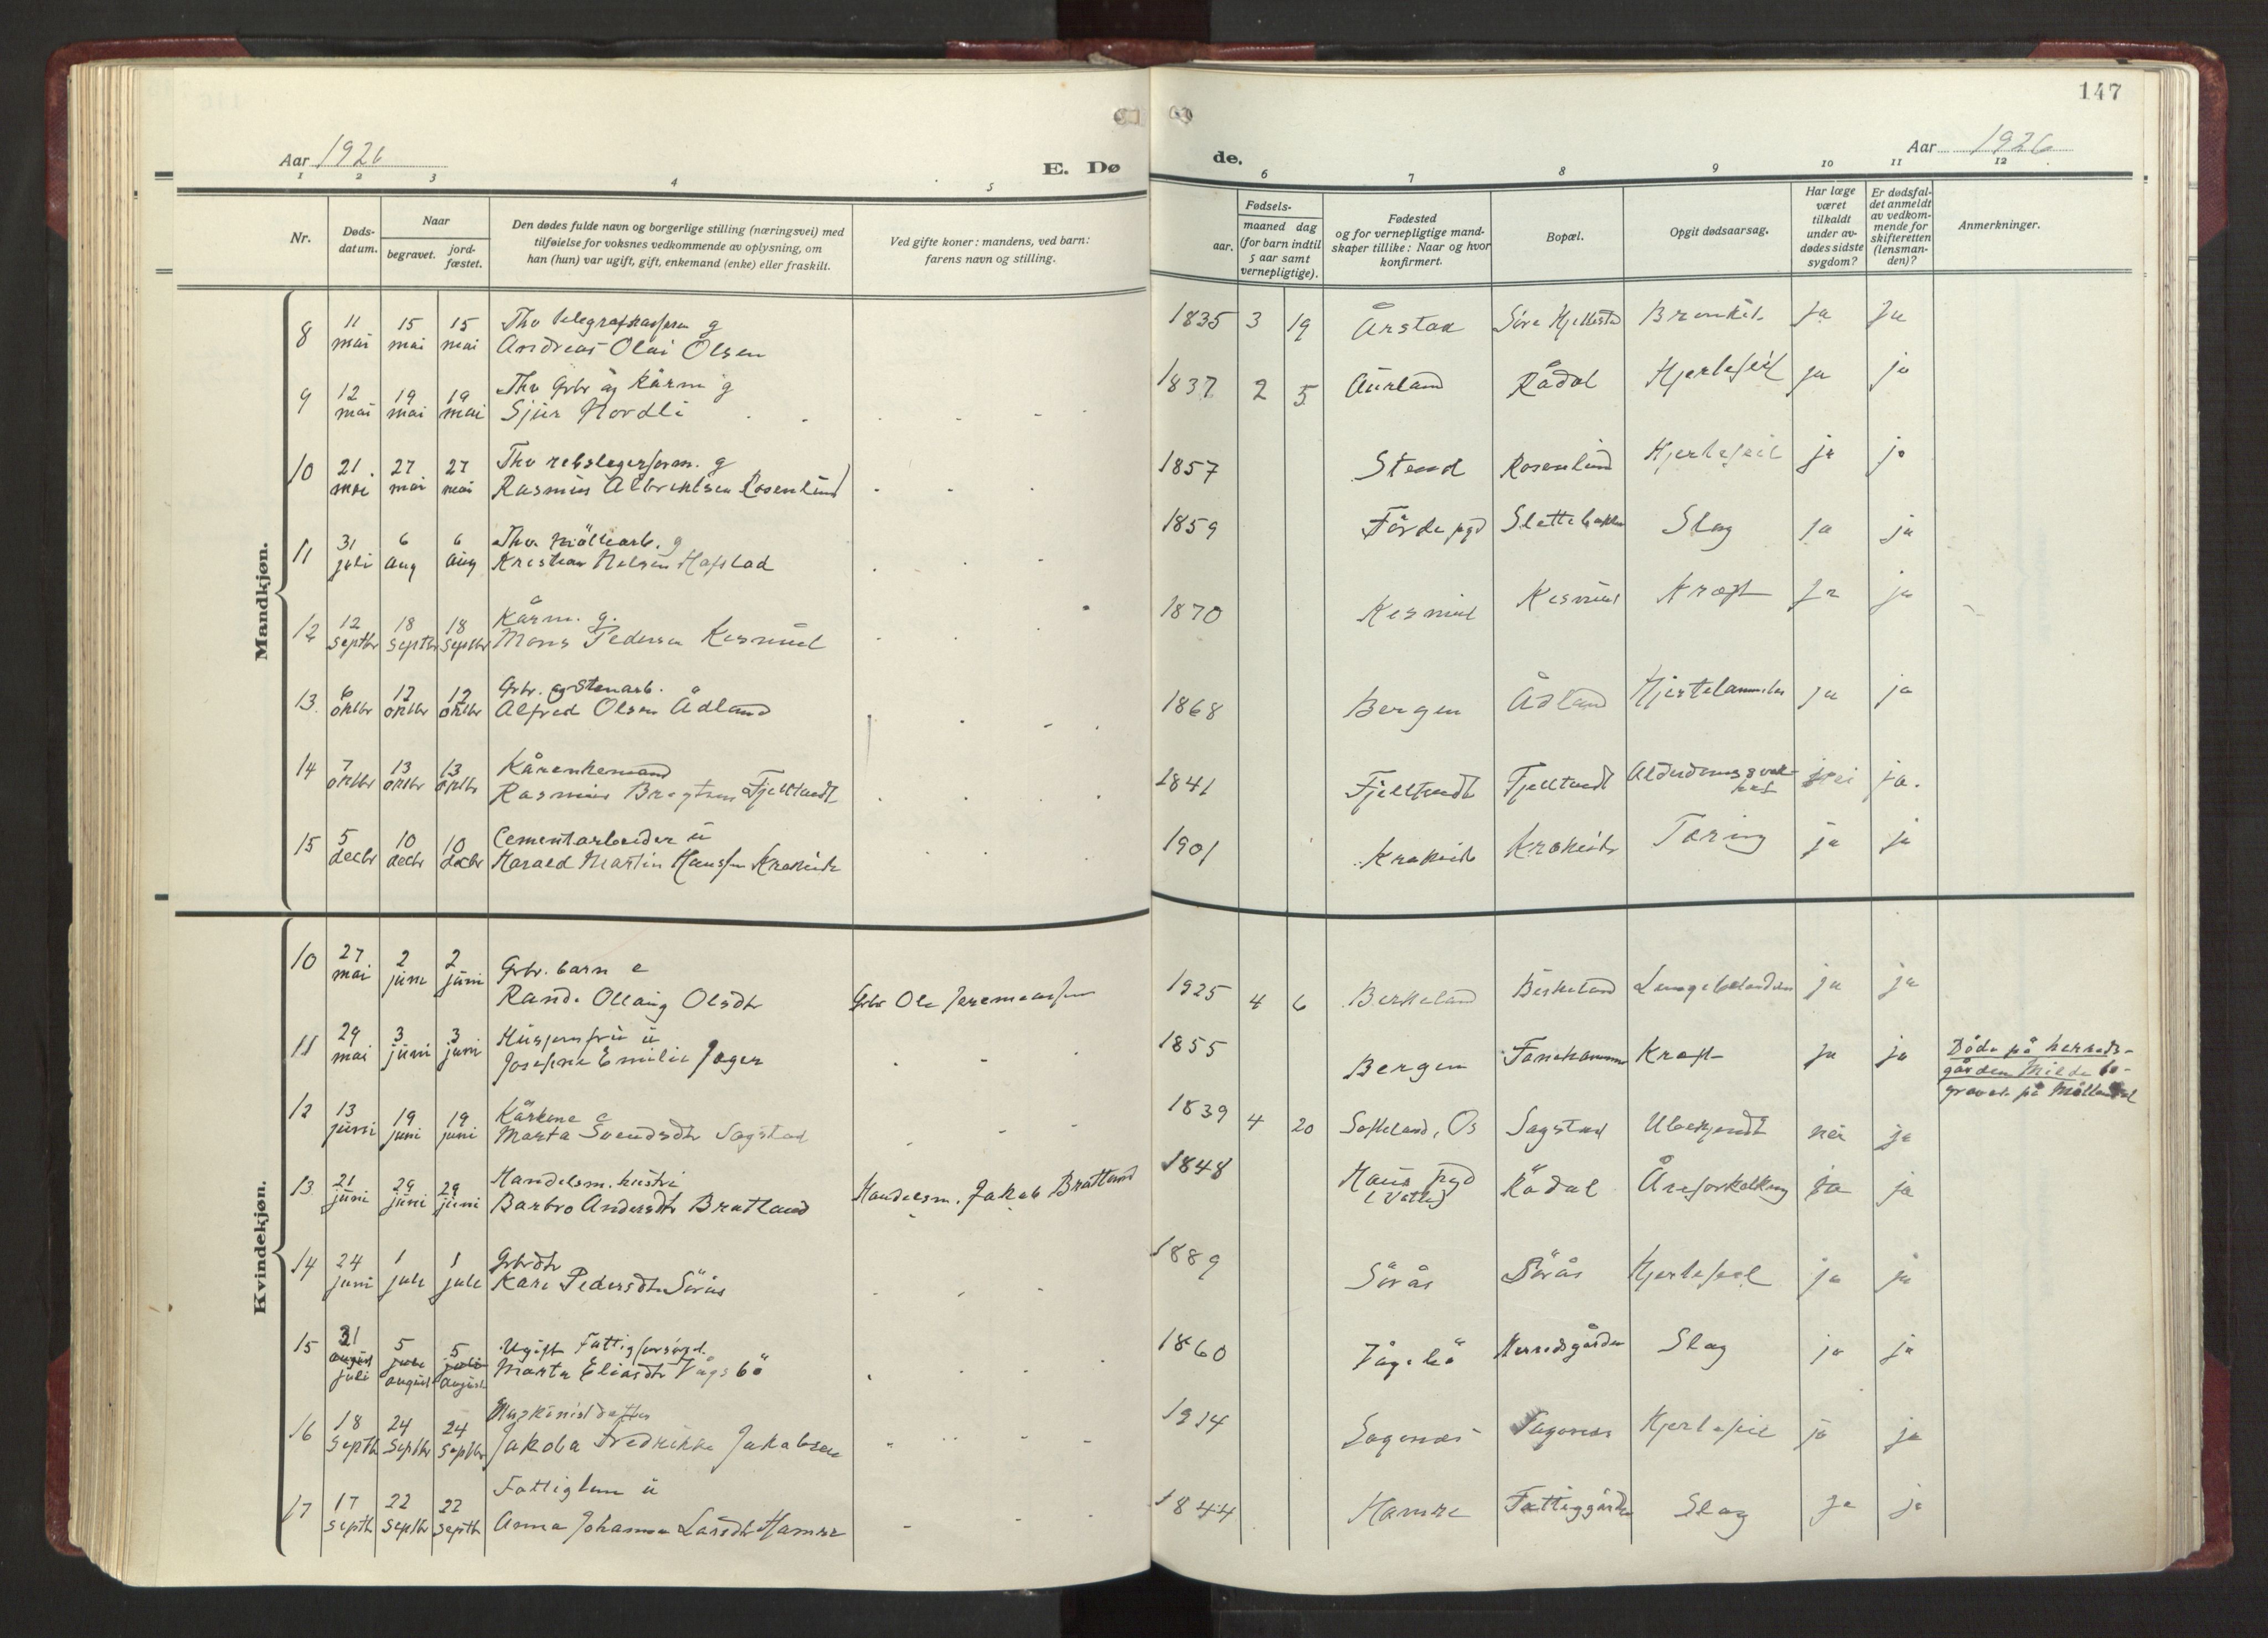 147
Aar 1926
E. Dø
de.
Aar 1926
1 2 3 4 5 6 7 8 9 10 11 12
Nr.
Døds-
datum.
Naar
begravet.
jord-
fæstet.
Den dødes fulde navn og borgerlige stilling (næringsvei) med
tilføielse for voksnes vedkommende av oplysning, om
han (hun) var ugift, gift, enkemand (enke) eller fraskilt.
Ved gifte koner: mandens, ved barn:
farens navn og stilling.
Fødsels-
aar.
maaned dag
(for barn indtil
5 aar samt
vernepligtige).
Fødested
og for vernepligtige mand-
skaper tillike: Naar og hvor
konfirmert.
Bopæl.
Opgit dødsaarsag.
Har læge
været
tilkaldt
under av-
dødes sidste
sygdom?
Er dødsfal-
det anmeldt
av vedkom-
mende for
skifteretten
(lensman-
den)?
Anmerkninger.
Mandkjøn.
8 11 mai 15 mai 15 mai Thv g
Andreas Olai Olsen 1835 3 19 Årstad Ja Ja
9 12 mai 19 mai 19 mai Thv Grbr og Kårm g
Sjur Nordli 1837 2 5 Aurland Rådal Hjertefeil ja ja
10 21 mai 27 mai 27 mai Thv rebslagerform. g
Rasmus Albrektsen Rosenlund 1857 Stend Rosenlund Hjertefeil ja ja
11 31 juli 6 aug 6 aug Thv. Möllearb. g
Kristian Nelsen Hafstad 1859 Förde pgd Slettebakken Slag ja ja
12 12 septbr 18 septbr 18 septbr Kårm. g.
Mons Pedersen Kismul 1870 Kismul Kismul Kræft ja ja
13 6 oktbr 12 oktbr 12 oktbr Grbr. og Stenarb.
Alfred Olsen Ådland 1868 Bergen Ådland Hjertelammelse ja ja
14 7 oktbr 13 oktbr 13 oktbr Kårenkemand
Rasmus Fjelltvedt 1841 Fjelltvedt Fjelltvedt Alderdomssvak-
het nei ja.
15 5 decbr 10 decbr 10 decbr Cementarbeider u
Harald Martin Hansen Krokeide 1901 Krokeide Krokeide Tæring ja ja
Kvindekjøn.
10 27 mai 2 juni 2 juni Grbr. barn e
Randi Ollaug Olsdtr Grbr Ole Jeremiassen 1925 4 6 Birkeland Birkeland Lungebetændelse ja ja
11 29 mai 3 juni 3 juni u
Josefine Emilie Jæger 1855 Bergen Fanahammeren Kræft ja ja Döde på herreds-
gården Milde be-
gravet på Möllendal
12 13 juni 19 juni 19 juni Kårkone e
Marta Svendsdtr Sagstad 1839 4 20 Söfteland, Os Sagstad Ubekjendt nei ja
13 21 juni 29 juni 29 juni Handelsm. hustru
Barbro Andersdtr Bratland Handelsm. Jakob Bratland 1848 Haus pgd Rådal Åreforkalkning ja ja
14 24 juni 1 juli 1 juli Grbrdtr
Kari Pedersdtr Sörås 1889 Sörås Sörås Hjertefeil ja ja
15 31 august juli 5 juli august 5 juli august Ugift Fattigforsörget.
Marta Eliasdtr Vågsbö 1860 Vågsbö Herredsgården Slag ja ja
16 18 septbr 24 septbr 24 septbr Maskinistdatter
Jakoba Fredrikke Jakobsen 1914 Sagenæs Sagenæs Hjertefeil ja ja
17 17 septb 22 septbr 22 septbr Fattiglem u
Anna Johanna Larsdtr Hamre 1844 Hamre Fattiggården Slag ja ja